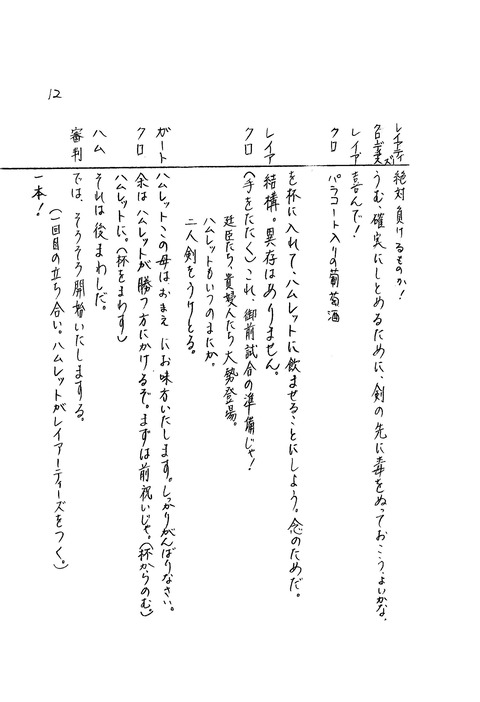 12
レイアティーズ 絶対負けるものか！
クローディアス うむ、確実にしとめるために、剣の先に毒をぬっておこう、よいかな、
レイア 喜んで！
クロ パラコート入りの葡萄酒
を杯に入れて、ハムレットに飲ませることにしよう。念のためだ。
レイア 結構。異存はありません。
クロ （手をたたく）これ、御前試合の準備じゃ！
廷臣たち、貴婦人たち大勢登場。
ハムレットもいつのまにか。
二人剣をうけとる。
ガート ハムレットこの母はおまえにお味方いたします。しっかりがんばりなさい。
クロ 余はハムレットが勝つ方にかけるぞ。まずは前祝いじゃ。（杯からのむ）
ハムレットに。（杯をまわす）
ハム それは後まわしだ。
審判 では、そろそろ開始いたしまする。
（一回目の立ち合い。ハムレットがレイアーティーズをつく。）
一本！